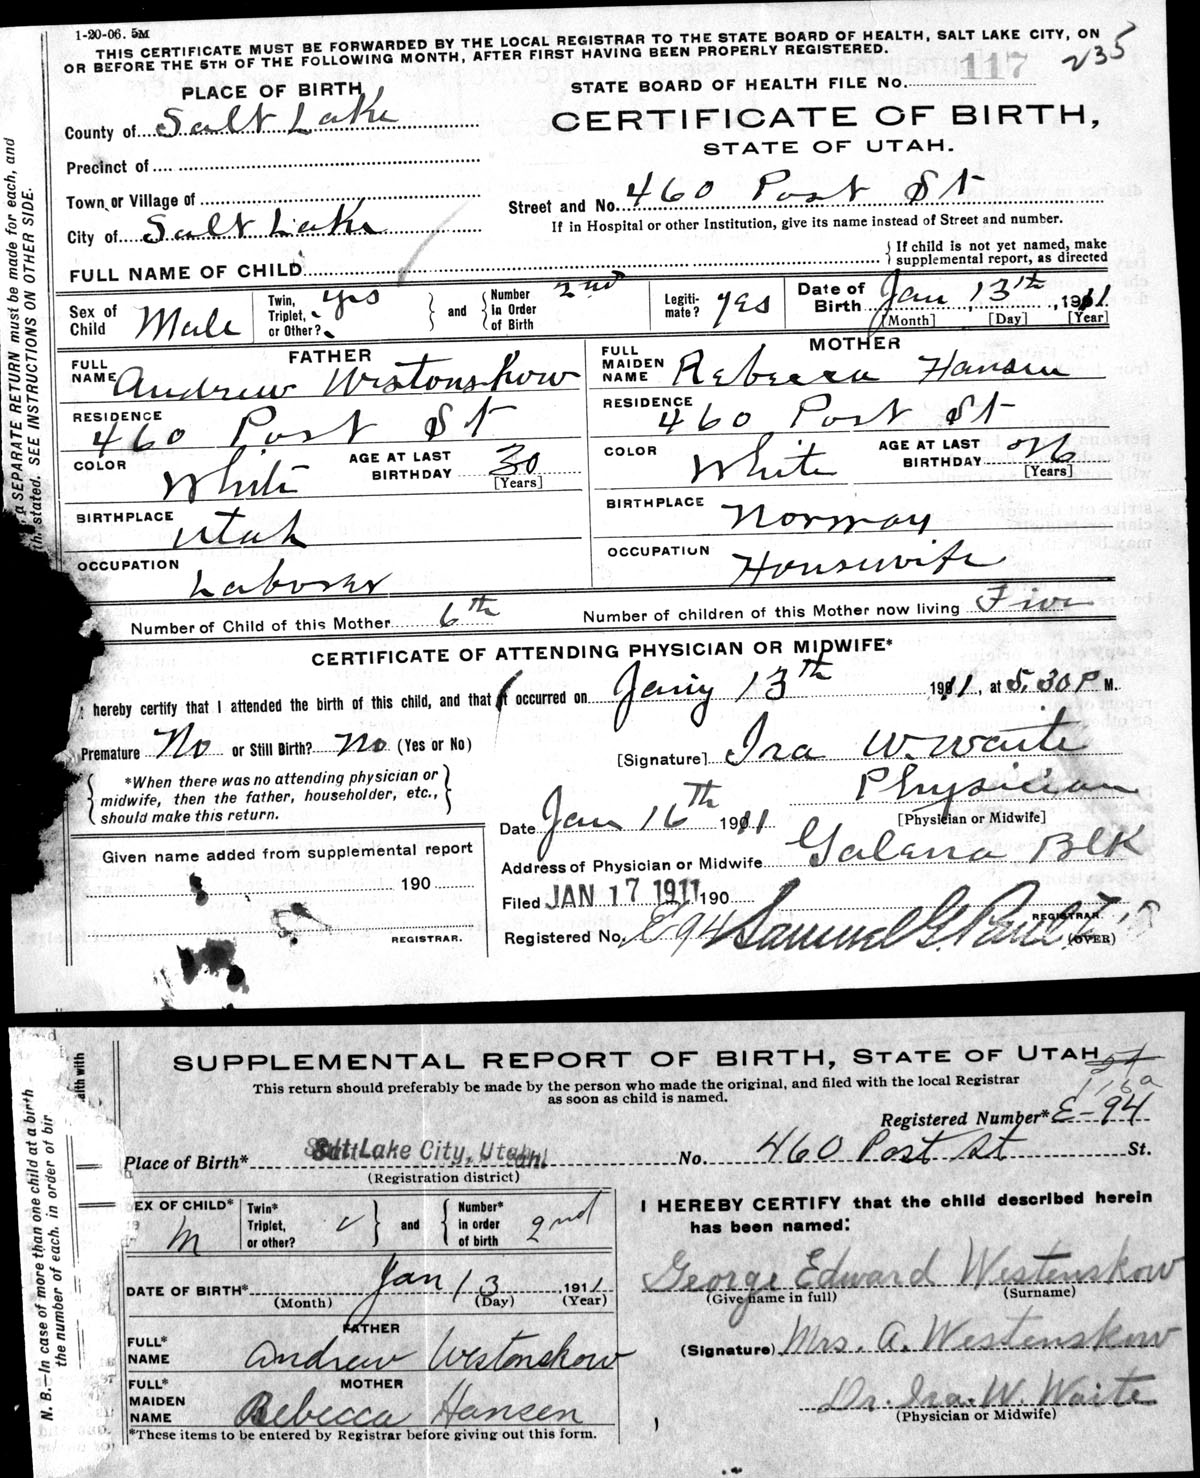 1-20-06. 5M
THIS CERTIFICATE MUST BE FORWARDED BY THE LOCAL REGISTRAR TO THE STATE BOARD OF HEALTH, SALT LAKE CITY, ON
OR BEFORE THE 5TH OF THE FOLLOWING MONTH, AFTER FIRST HAVING BEEN PROPERLY REGISTERED.
235
PLACE OF BIRTH
STATE BOARD OF HEALTH FILE No. 117
County of Salt Lake
CERTIFICATE OF BIRTH,
STATE OF UTAH.
Precinct of
Town or Village of
Street and No. 460 Post St
City of Salt Lake
If in Hospital or other Institution, give its name instead of Street and number.
FULL NAME OF CHILD
If child is not yet named, make
supplemental report, as directed
Sex of Child Male
Twin, Triplet, or Other? yes
and
Number in Order of Birth 2nd
Legitimate? yes
Date of Birth Jan 13th, 1911
[Month] [Day] [Year]
FATHER
FULL NAME Andrew Westonskow
RESIDENCE 460 Post St
COLOR White
AGE AT LAST BIRTHDAY 30
[Years]
BIRTHPLACE Utah
OCCUPATION Laborer
MOTHER
FULL MAIDEN NAME Rebecca Hansen
RESIDENCE 460 Post St
COLOR White
AGE AT LAST BIRTHDAY 26
[Years]
BIRTHPLACE Norway
OCCUPATION Housewife
Number of Child of this Mother 6th
Number of children of this Mother now living Five
CERTIFICATE OF ATTENDING PHYSICIAN OR MIDWIFE*
hereby certify that I attended the birth of this child, and that it occurred on Jany 13th 1911, at 5.30 P M.
Premature No or Still Birth? No (Yes or No)
[Signature] Ira W. Waite
*When there was no attending physician or
midwife, then the father, householder, etc.,
should make this return.
Physician
[Physician or Midwife]
Date Jan 16th 1911
Address of Physician or Midwife Galena Blk
Given name added from supplemental report
190
REGISTRAR.
Filed JAN 17 1911 190
Registered No. E 94 Samuel G. Paul
REGISTRAR.
(OVER)
a SEPARATE RETURN must be made for each, and
stated. SEE INSTRUCTIONS ON OTHER SIDE.
SUPPLEMENTAL REPORT OF BIRTH, STATE OF UTAH
This return should preferably be made by the person who made the original, and filed with the local Registrar
as soon as child is named.
Registered Number* E-94
Place of Birth* Salt Lake City, Utah No. 460 Post St St.
(Registration district)
SEX OF CHILD* M
Twin* Triplet, or other?
and
Number* in order of birth 2nd
DATE OF BIRTH* Jan 13, 1911
(Month) (Day) (Year)
FATHER
FULL* NAME Andrew Westonskow
MOTHER
FULL* MAIDEN NAME Rebecca Hansen
*These items to be entered by Registrar before giving out this form.
I HEREBY CERTIFY that the child described herein
has been named:
George Edward Westenskow
(Give name in full) (Surname)
(Signature) Mrs. A. Westenskow
Dr. Ira. W. Waite
(Physician or Midwife)
N. B.—In case of more than one child at a birth
the number of each, in order of bir